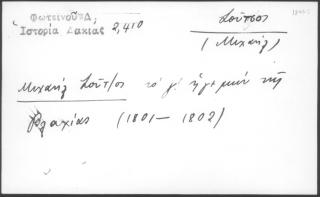 Φωτεινοῦ Δ,
Ἱστορία Δακίας 2,410
Σοῦτσος
(Μιχαήλ)
Μιχαήλ Σοῦτσος τὸ γ' ἡγεμὼν τῆς
Βλαχίας (1801-1802)